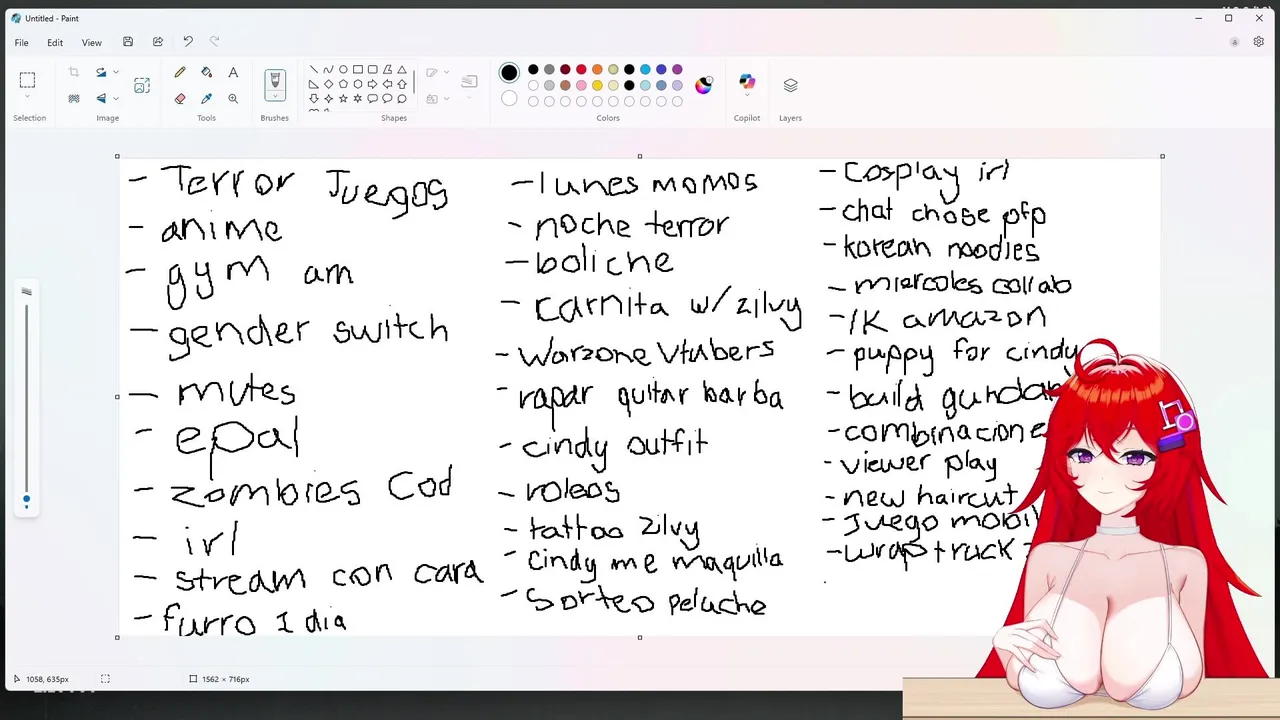 Untitled - Paint
File Edit View
Selection
Image
Tools
Brushes
Shapes
Colors
Copilot
Layers
- Terror Juegos
- anime
- gym am
- gender switch
- mutes
- epal
- zombies Cod
- irl
- stream con cara
- furro 1 dia
- lunes momos
- noche terror
- boliche
- carnita w/ zilvy
- Warzone Vtubers
- rapar quitar barba
- cindy outfit
- roleos
- tattoo zilvy
- Cindy me maquilla
- Sorteo peluche
- Cosplay irl
- chat chose pfp
- korean noodles
- miercoles collab
- 1K amazon
- puppy for cindy
- build gundam
- combinacione
- viewer play
- new haircut
- Juego mobil
- wrap truck -
1058, 635px
1562 × 716px